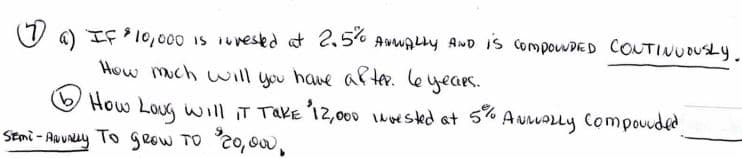 ⑦ a) IF $10,000 is invested at 2.5% ANNUALLY AND is COMPOUNDED CONTINUOUSLY.
How much will you have after 6 years.
ⓑ How Long will iT TAKE $12,000 invested at 5% ANNUALLY Compounded
SEmi-ANNUALLY To grow To $20,000.